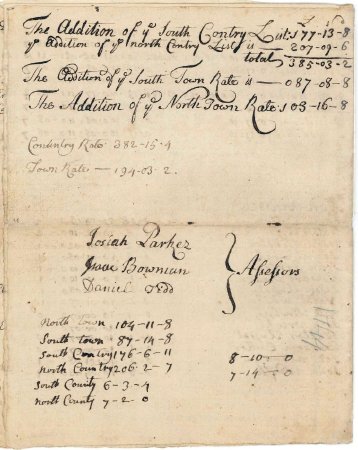 The Addition of yᵉ South Contry List: 177-13-8
yᵉ Addition of yᵉ North Contry List is 207-09-6
total 385-03-2
The Addition of yᵉ South Town Rate is — 087-08-8
The Addition of yᵉ North Town Rate: 103-16-8
Country Rate 382-15-4
Town Rate — 194-03-2.
Josiah Parker
Isaac Bowman
Daniel Tedd
Asessors
North Town 104-11-8
South town 87-14-8
South Contry 176-6-11
North Country 206-2-7
South County 6-3-4
North County 7-2-0
8-10-0
7-14-0